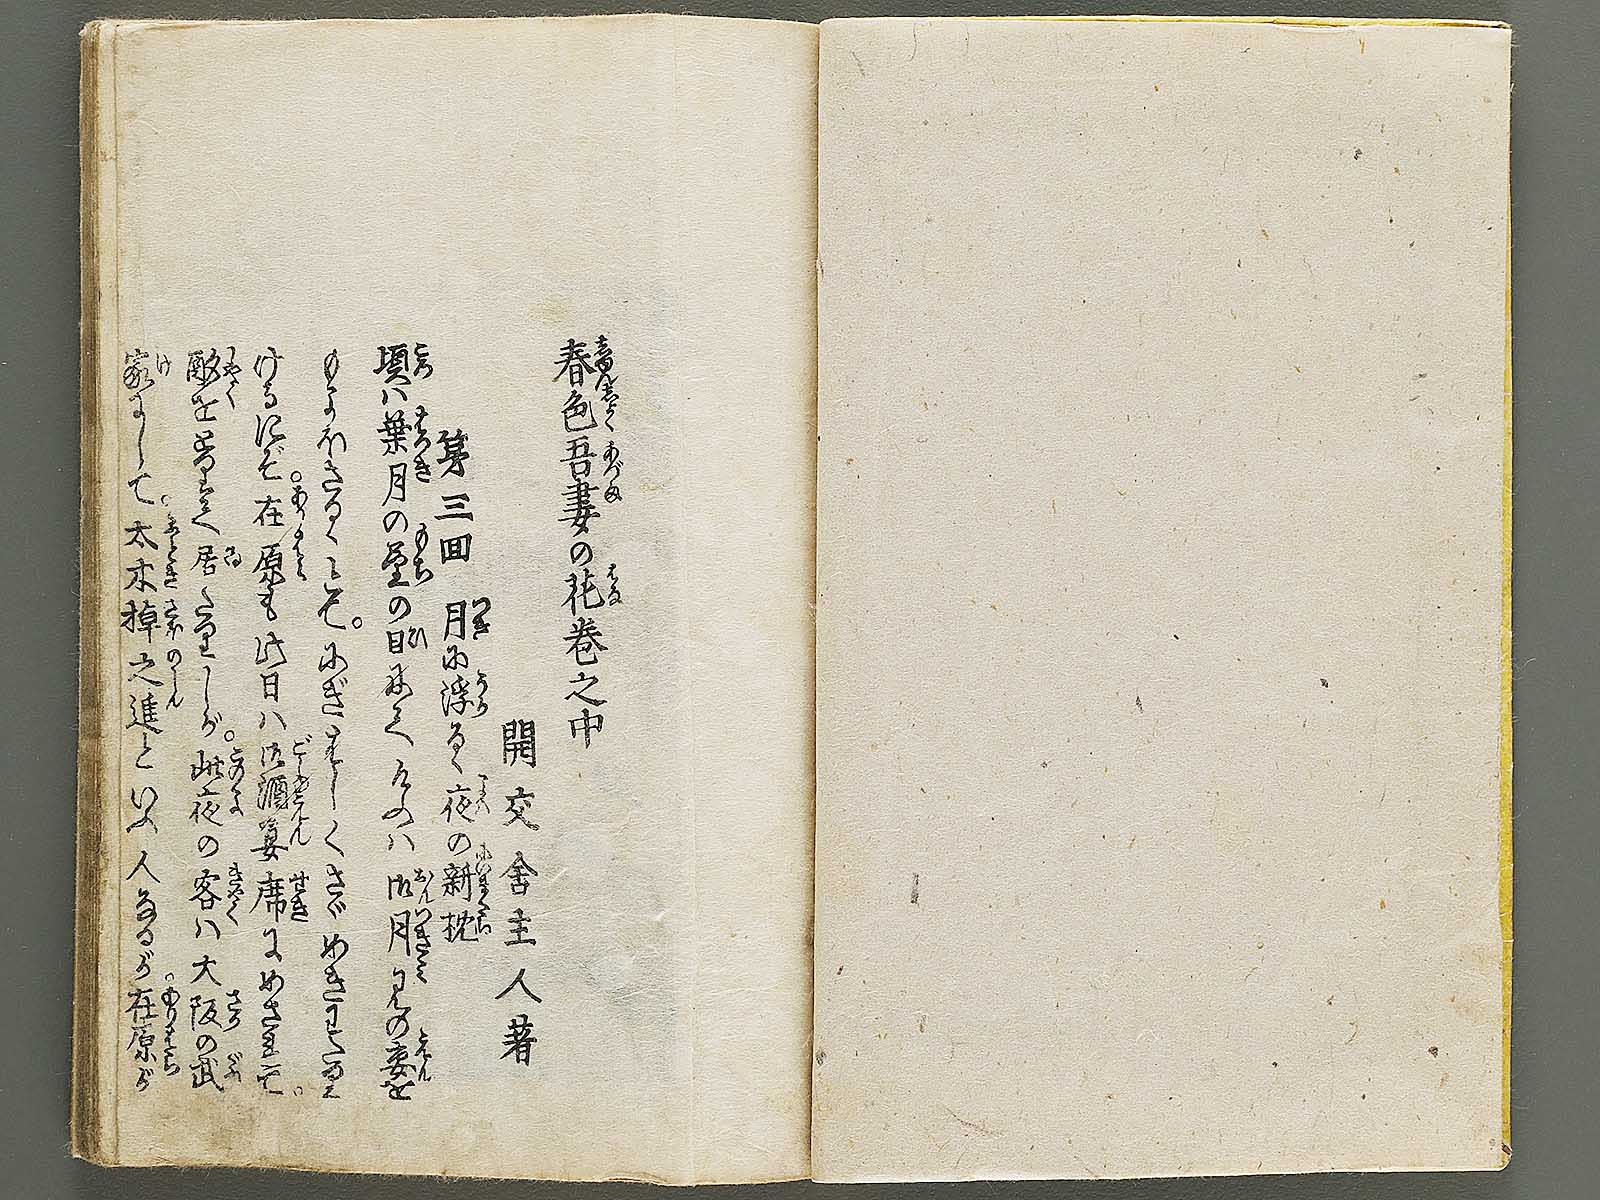 春色吾妻の花巻之中
開交舎主人著
第三回 月に浮る夜の新枕
頃ハ葉月の望の日にて けふハ御月見の宴を
もよほさるゝとて。にぎはしくさゞめきわたり
けるにぞ。在原も此日ハ御酒宴席にめされて。
酌をとりて居たりしが。此夜の客ハ大阪の武
家にして。太木掉之進といふ人なるが。在原が